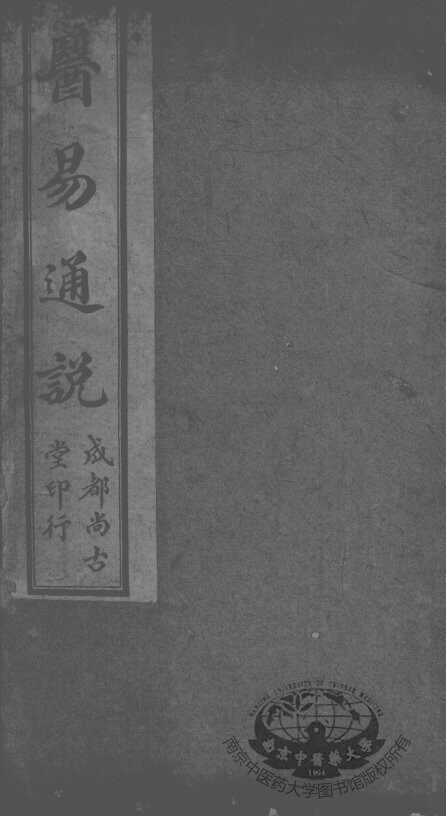 醫易通説
成都尚古
堂印行
NANJING UNIVERSITY OF CHINESE MEDICINE
南京中醫藥大學
1954
南京中医药大学图书馆版权所有